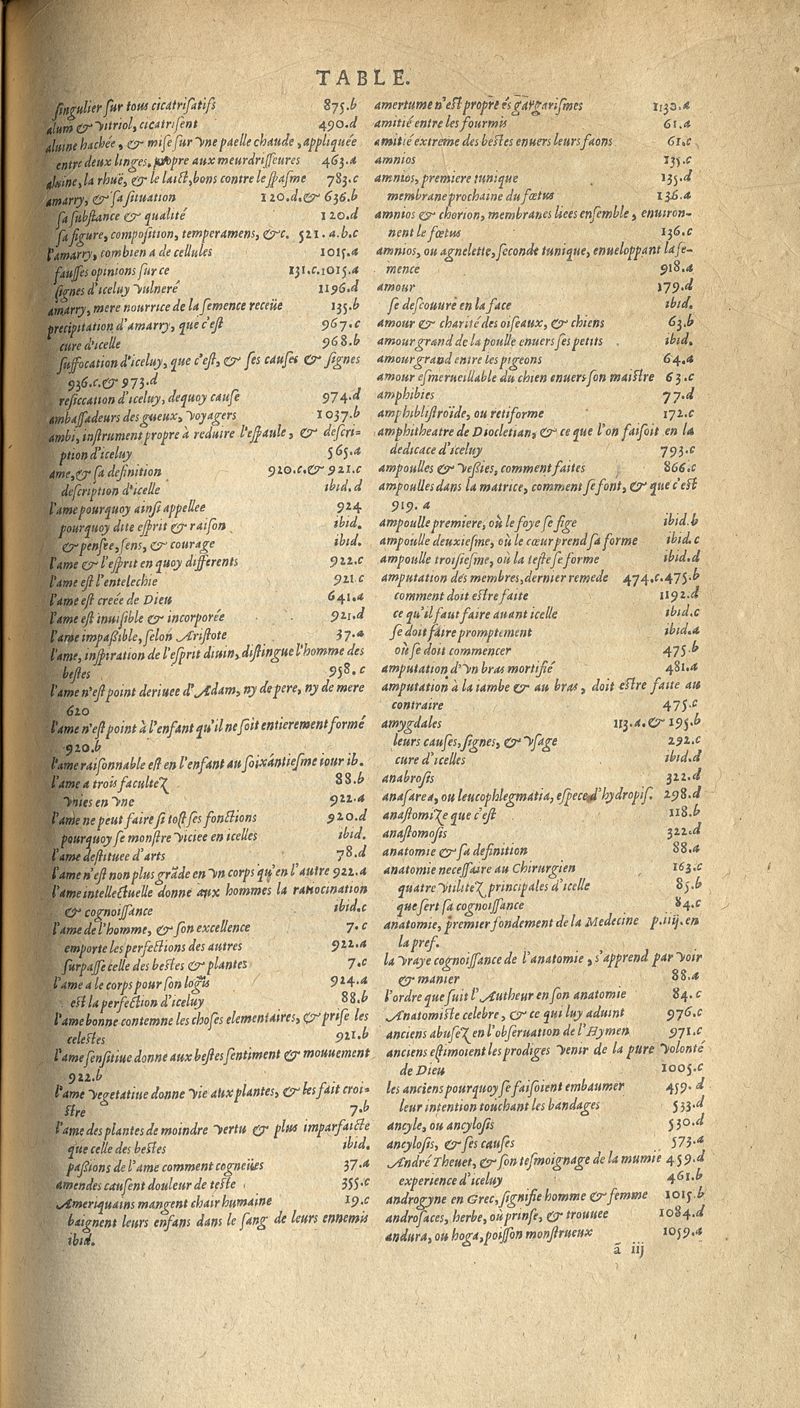 TABLE.
ſingulier ſur tous cicatriſatifs 875.b
alum & vitriol, cicatriſent 490.d
aluine hachée, & miſe ſur vne paelle chaude, appliquée
entre deux linges, propre aux meurdriſſeures 463.a
aluine, la rhuë, & le laict, bons contre le ſpaſme 783.c
amarry, & ſa ſituation 120.d.& 636.b
ſa ſubſtance & qualité 120.d
ſa figure, compoſition, temperamens, &c. 521.a.b.c
l'amarry, combien a de cellules 1015.a
fauſſes opinions ſur ce 131.c.1015.a
ſignes d'iceluy vulneré 1196.d
amarry, mere nourrice de la ſemence receüe 135.b
precipitation d'amarry, que c'eſt 967.c
cure d'icelle 968.b
ſuffocation d'iceluy, que c'eſt, & ſes cauſes & ſignes
936.c.& 973.d
reſiccation d'iceluy, dequoy cauſe 974.d
ambaſſadeurs des gueux, voyagers 1037.b
ambi, inſtrument propre à reduire l'eſpaule, & deſcri-
ption d'iceluy 565.a
ame, & ſa definition 920.c.& 921.c
deſcription d'icelle ibid.d
l'ame pourquoy ainſi appellee 924
pourquoy dite eſprit & raiſon ibid.
& penſée, ſens, & courage ibid.
l'ame & l'eſprit en quoy differents 922.c
l'ame eſt l'entelechie 921.c
l'ame eſt creée de Dieu 641.a
l'ame eſt inuiſible & incorporée 921.d
l'ame impaßible, ſelon Ariſtote 37.a
l'ame, inſpiration de l'eſprit diuin, diſtingue l'homme des
beſtes 958.c
l'ame n'eſt point deriuee d'Adam, ny de pere, ny de mere
620
l'ame n'eſt point à l'enfant qu'il ne ſoit entierement formé
920.b
l'ame raiſonnable eſt en l'enfant au ſoixãntieſme iour ib.
l'ame a trois facultez 88.b
vnies en vne 922.a
l'ame ne peut faire ſi toſt ſes fonctions 920.d
pourquoy ſe monſtre viciee en icelles ibid.
l'ame deſtituee d'arts 78.d
l'ame n'eſt non plus grãde en vn corps qu'en l'autre 922.a
l'ame intellectuelle donne aux hommes la ratiocination
& cognoiſſance ibid.c
l'ame de l'homme, & ſon excellence 7.c
emporte les perfections des autres 922.a
ſurpaſſe celle des beſtes & plantes 7.c
l'ame a le corps pour ſon logis 924.a
eſt la perfection d'iceluy 88.b
l'ame bonne contemne les choſes elementaires, & priſe les
celeſtes 921.b
l'ame ſenſitiue donne aux beſtes ſentiment & mouuement
922.b
l'ame vegetatiue donne vie aux plantes, & les fait croi-
ſtre 7.b
l'ame des plantes de moindre vertu & plus imparfaicte
que celle des beſtes ibid.
paßions de l'ame comment cogneües 37.a
amendes cauſent douleur de teſte 355.c
Ameriquains mangent chair humaine 19.c
baignent leurs enfans dans le ſang de leurs ennemis
ibid.
amertume n'eſt propre és gargariſmes 1130.a
amitié entre les fourmis 61.a
amitié extreme des beſtes enuers leurs faons 61.c
amnios 135.c
amnios, premiere tunique 135.d
membrane prochaine du fœtus 136.a
amnios & chorion, membranes liees enſemble, enuiron-
nent le fœtus 136.c
amnios, ou agnelette, ſeconde tunique, enueloppant la ſe-
mence 918.a
amour 179.d
ſe deſcouure en la face ibid.
amour & charité des oiſeaux, & chiens 63.b
amour grand de la poulle enuers ſes petits ibid.
amour grand entre les pigeons 64.a
amour eſmerueillable du chien enuers ſon maiſtre 63.c
amphibies 77.d
amphibliſtroïde, ou retiforme 172.c
amphitheatre de Diocletian, & ce que l'on faiſoit en la
dedicace d'iceluy 793.c
ampoulles & veſsies, comment faites 866.c
ampoulles dans la matrice, comment ſe font, & que c'eſt
919.a
ampoulle premiere, où le foye ſe fige ibid.b
ampoulle deuxieſme, où le cœur prend ſa forme ibid.c
ampoulle troiſieſme, où la teſte ſe forme ibid.d
amputation des membres, dernier remede 474.c.475.b
comment doit eſtre faite 1192.d
ce qu'il faut faire auant icelle ibid.c
ſe doit faire promptement ibid.a
où ſe doit commencer 475.b
amputation d'vn bras mortifié 481.a
amputation à la iambe & au bras, doit eſtre faite au
contraire 475.c
amygdales 113.a.& 195.b
leurs cauſes, ſignes, & vſage 292.c
cure d'icelles ibid.d
anabroſis 322.d
anaſarca, ou leucophlegmatia, eſpece d'hydropiſ. 298.d
anaſtomize que c'eſt 118.b
anaſtomoſis 322.d
anatomie & ſa definition 88.a
anatomie neceſſaire au Chirurgien 163.c
quatre vtilitez principales d'icelle 85.b
que ſert ſa cognoiſſance 84.c
anatomie, premier fondement de la Medecine p.iiij.en
la pref.
la vraye cognoiſſance de l'anatomie, s'apprend par voir
& manier 88.a
l'ordre que ſuit l'Autheur en ſon anatomie 84.c
Anatomiſte celebre, & ce qui luy aduint 976.c
anciens abuſez en l'obſeruation de l'Hymen 971.c
anciens eſtimoient les prodiges venir de la pure volonté
de Dieu 1005.c
les anciens pourquoy ſe faiſoient embaumer 459.d
leur intention touchant les bandages 533.d
ancyle, ou ancyloſis 530.d
ancyloſis, & ſes cauſes 573.a
André Theuet, & ſon teſmoignage de la mumie 459.d
experience d'iceluy 461.b
androgyne en Grec, ſignifie homme & femme 1015.b
androſaces, herbe, où prinſe, & trouuee 1084.d
andura, ou hoga, poiſſon monſtrueux 1059.a
ã iij